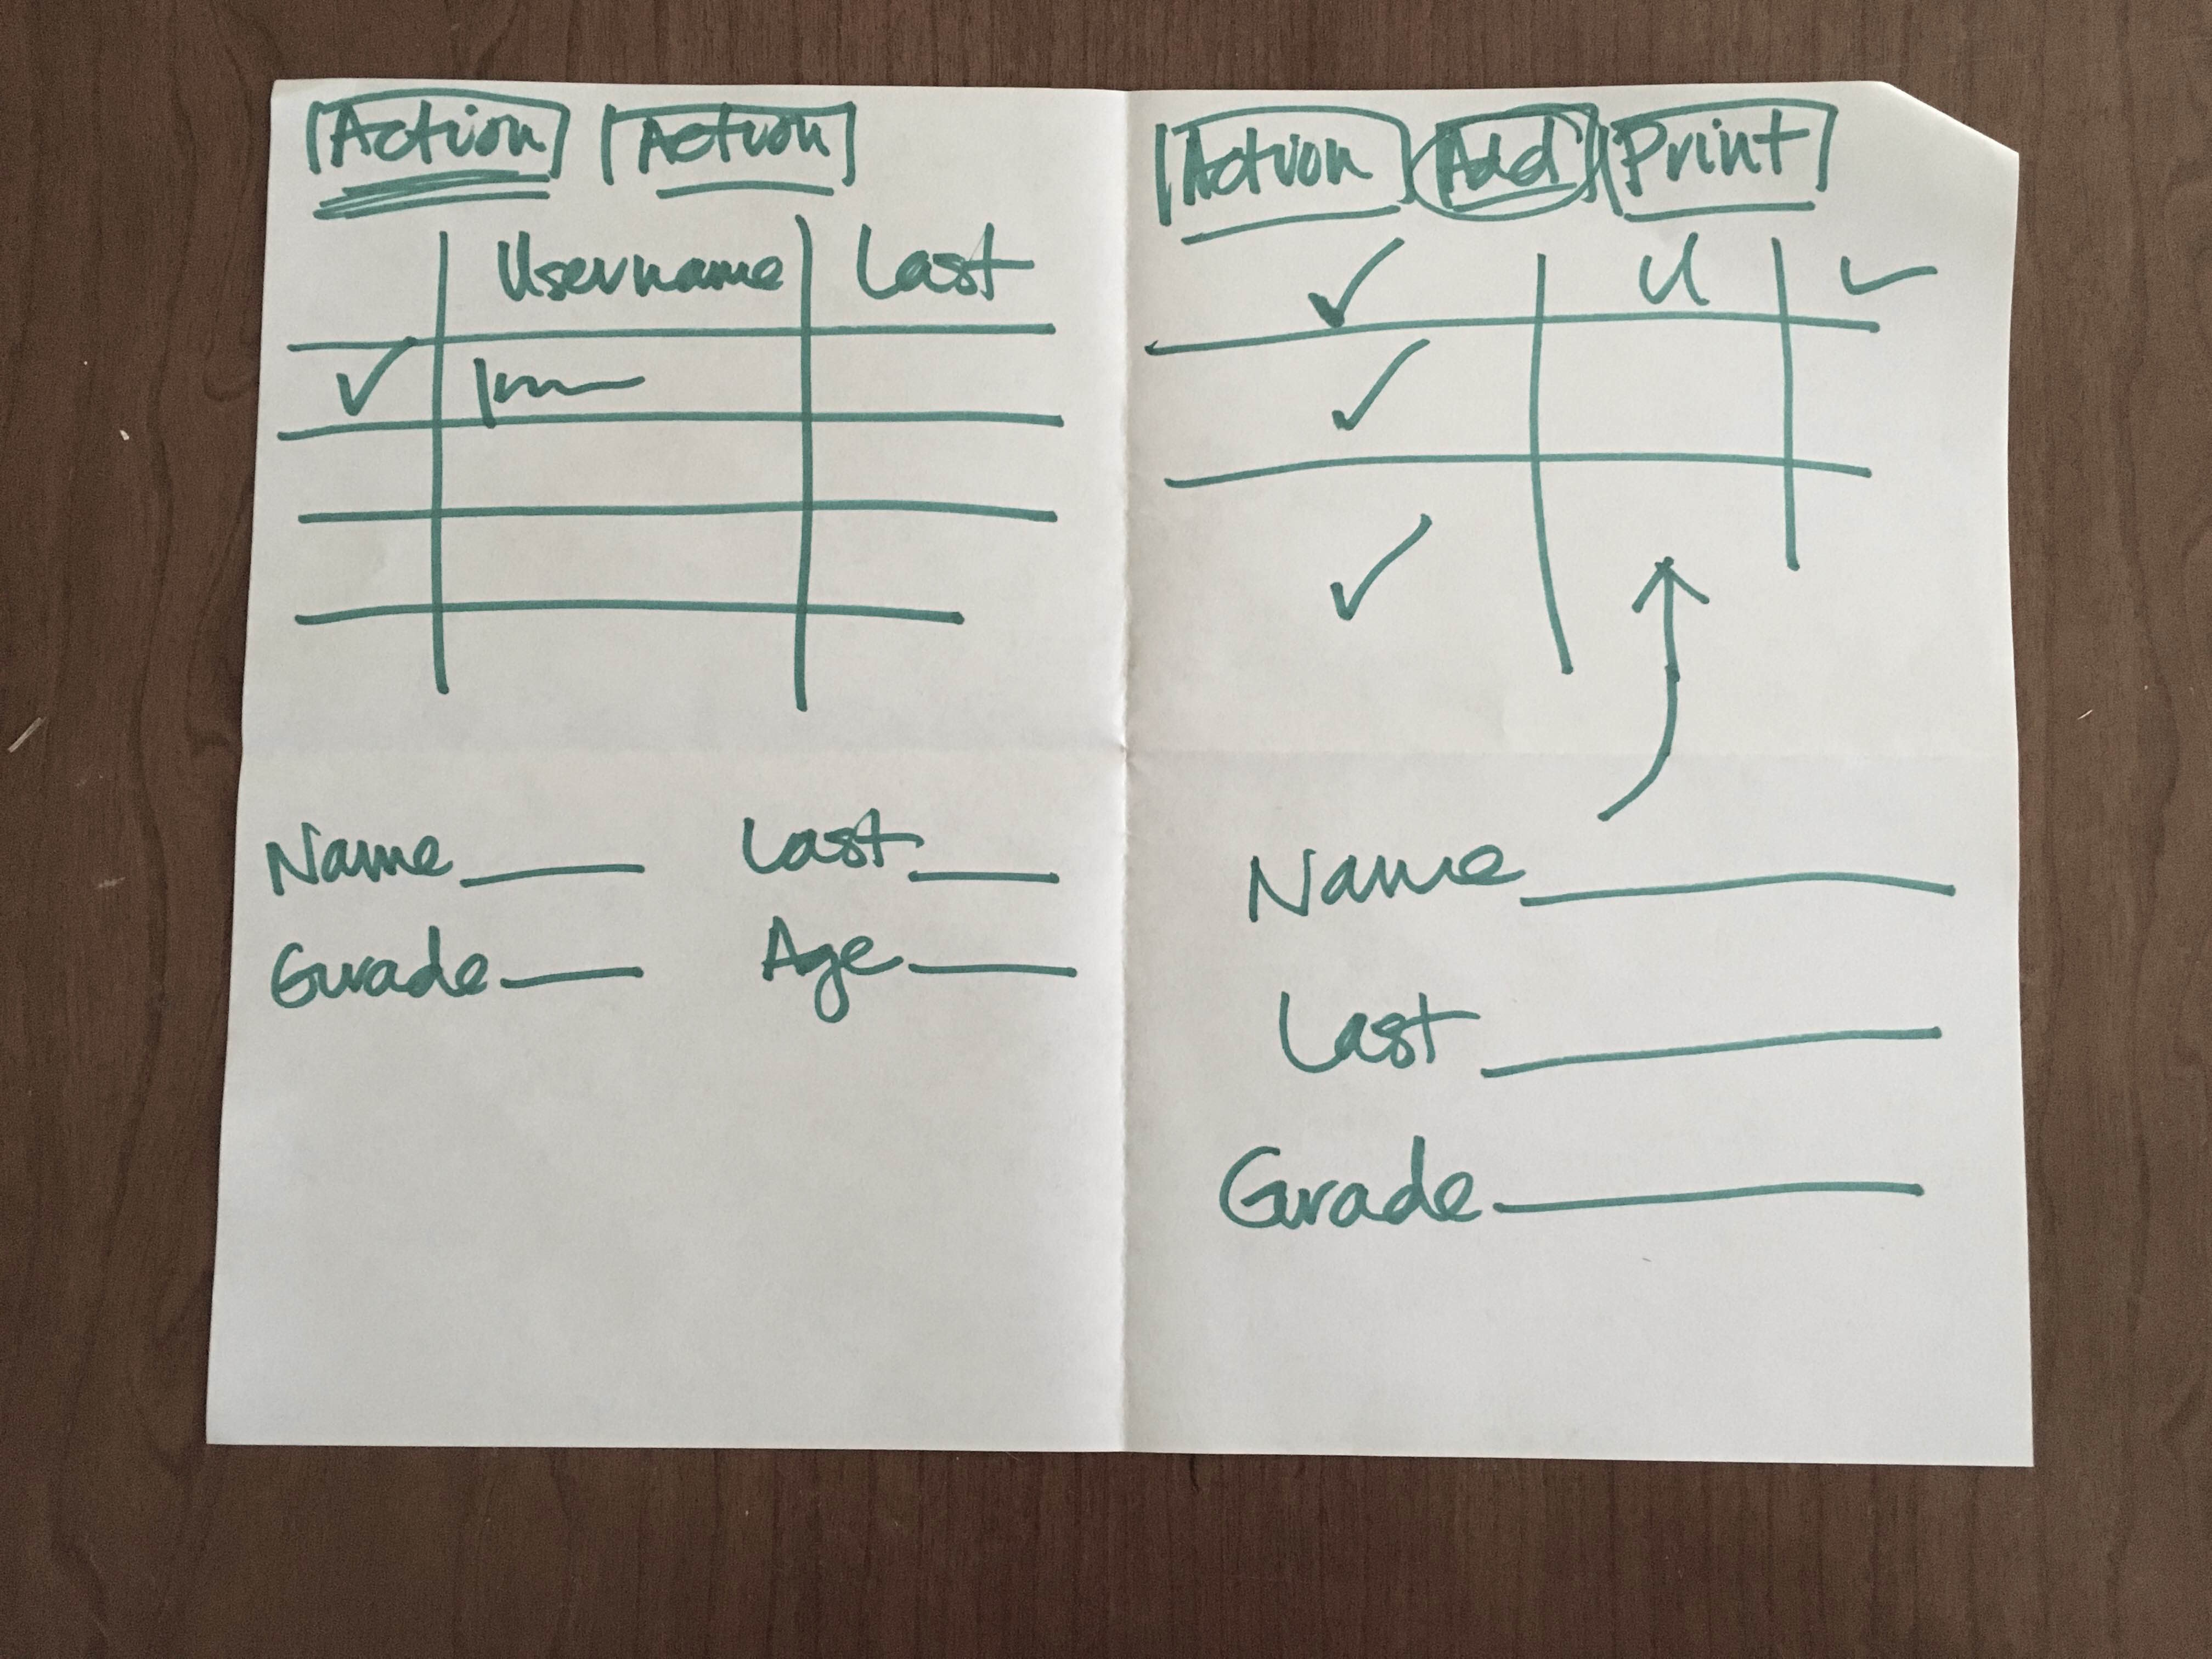 Action Action
Username Last
Name Last
Grade Age
Action Add Print
U L
Name
Last
Grade